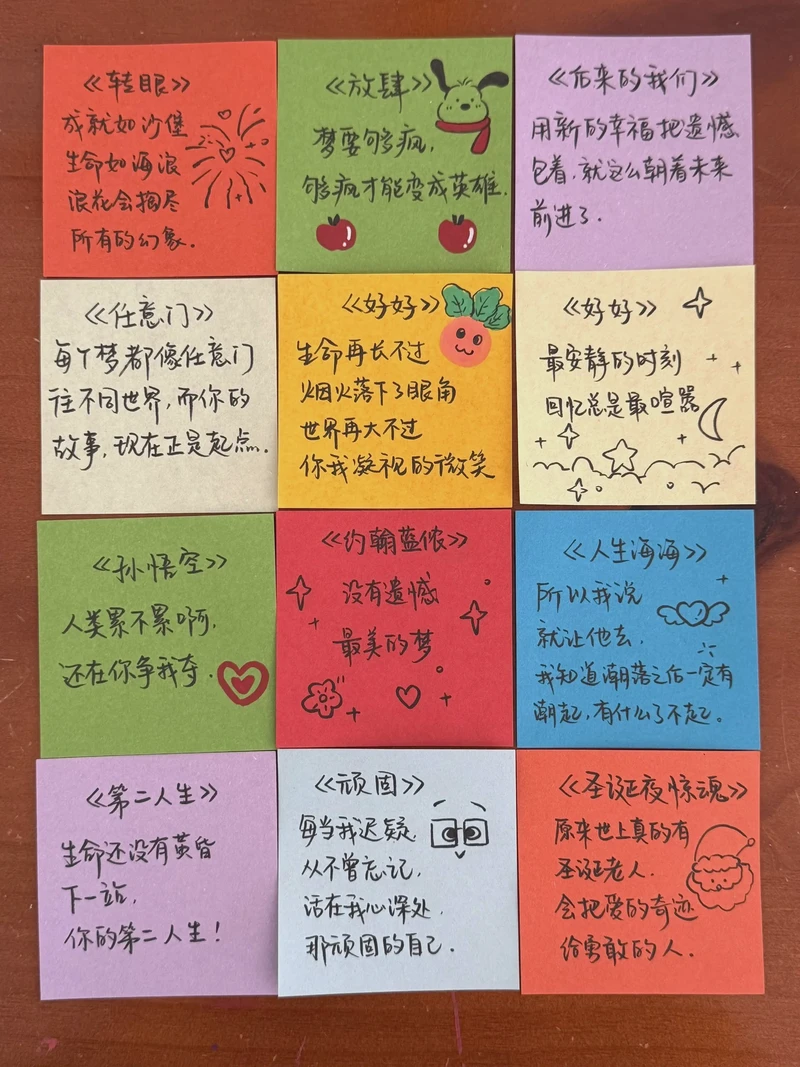 《转眼》
成就如沙堡
生命如海浪
浪花会掏尽
所有的幻象.
《放肆》
梦要够疯,
够疯才能变成英雄.
《后来的我们》
用新的幸福把遗憾
包着,就这么朝着未来
前进了.
《任意门》
每个梦都像任意门
往不同世界,而你的
故事,现在正是起点.
《好好》
生命再长不过
烟火落下了眼角
世界再大不过
你我凝视的微笑
《好好》
最安静的时刻
回忆总是最喧嚣
《孙悟空》
人类累不累啊,
还在你争我夺.
《约翰蓝侬》
没有遗憾
最美的梦
《人生海海》
所以我说
就让他去,
我知道潮落之后一定有
潮起,有什么了不起。
《第二人生》
生命还没有黄昏
下一站,
你的第二人生!
《顽固》
每当我迟疑,
从不曾忘记,
活在我心深处,
那顽固的自己.
《圣诞夜惊魂》
原来世上真的有
圣诞老人.
会把爱的奇迹
给勇敢的人.